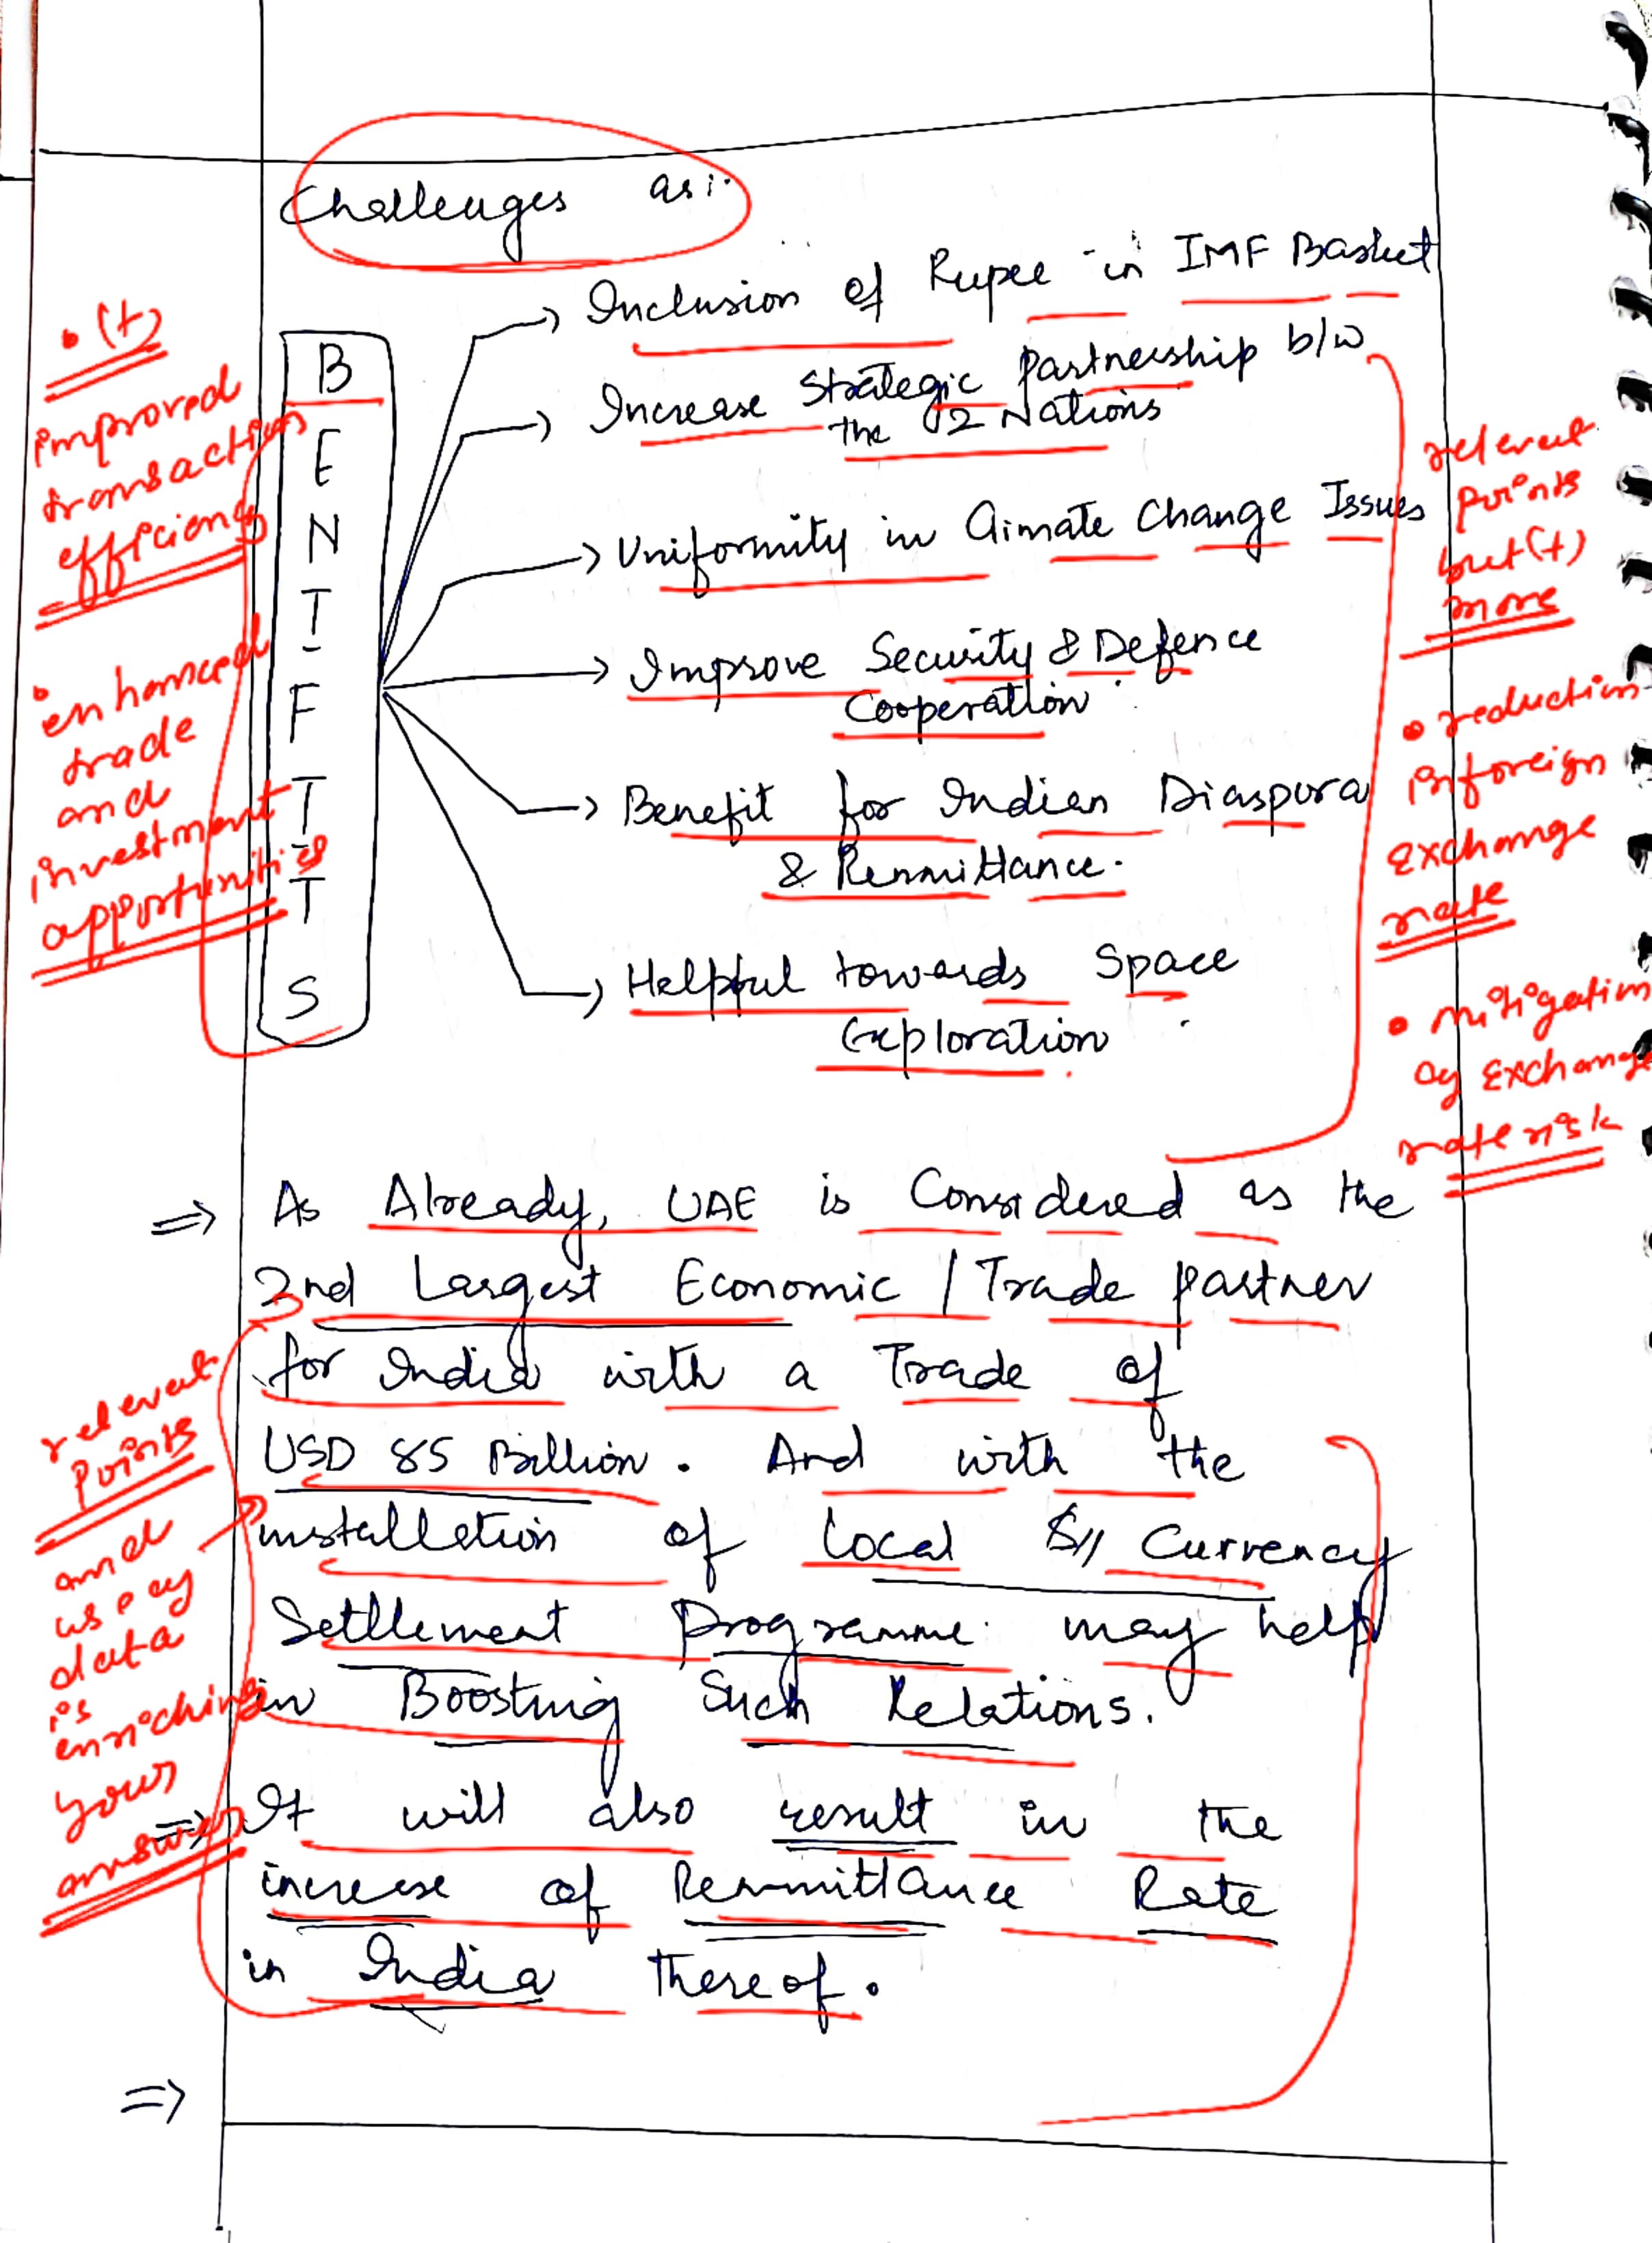 Challenges as:
Inclusion of Rupee in IMF Basket
Increase Strategic Partnership b/w
the 2 Nations
Uniformity in Climate Change Issues
Improve Security & Defence
Cooperation
Benefit for Indian Diaspora
& Remmittance.
Helpful towards Space
Exploration
B
E
N
I
F
I
T
S
• (+)
improved
transaction
efficiency
• enhanced
trade
and
investment
opportunities
relevent
points
but (+)
more
• reduction
in foreign
exchange
rate
• mitigation
of exchange
rate risk
⇒ As Already, UAE is Considered as the
2nd Largest Economic / Trade partner
for India with a Trade of
USD 85 Billion. And with the
installetion of Local Currency
Settlement programme may help
in Boosting Such Relations.
⇒ It will also result in the
increase of Remmittance Rate
in India thereof.
⇒
relevent
points
and
use of
data
is
enriching
your
answer